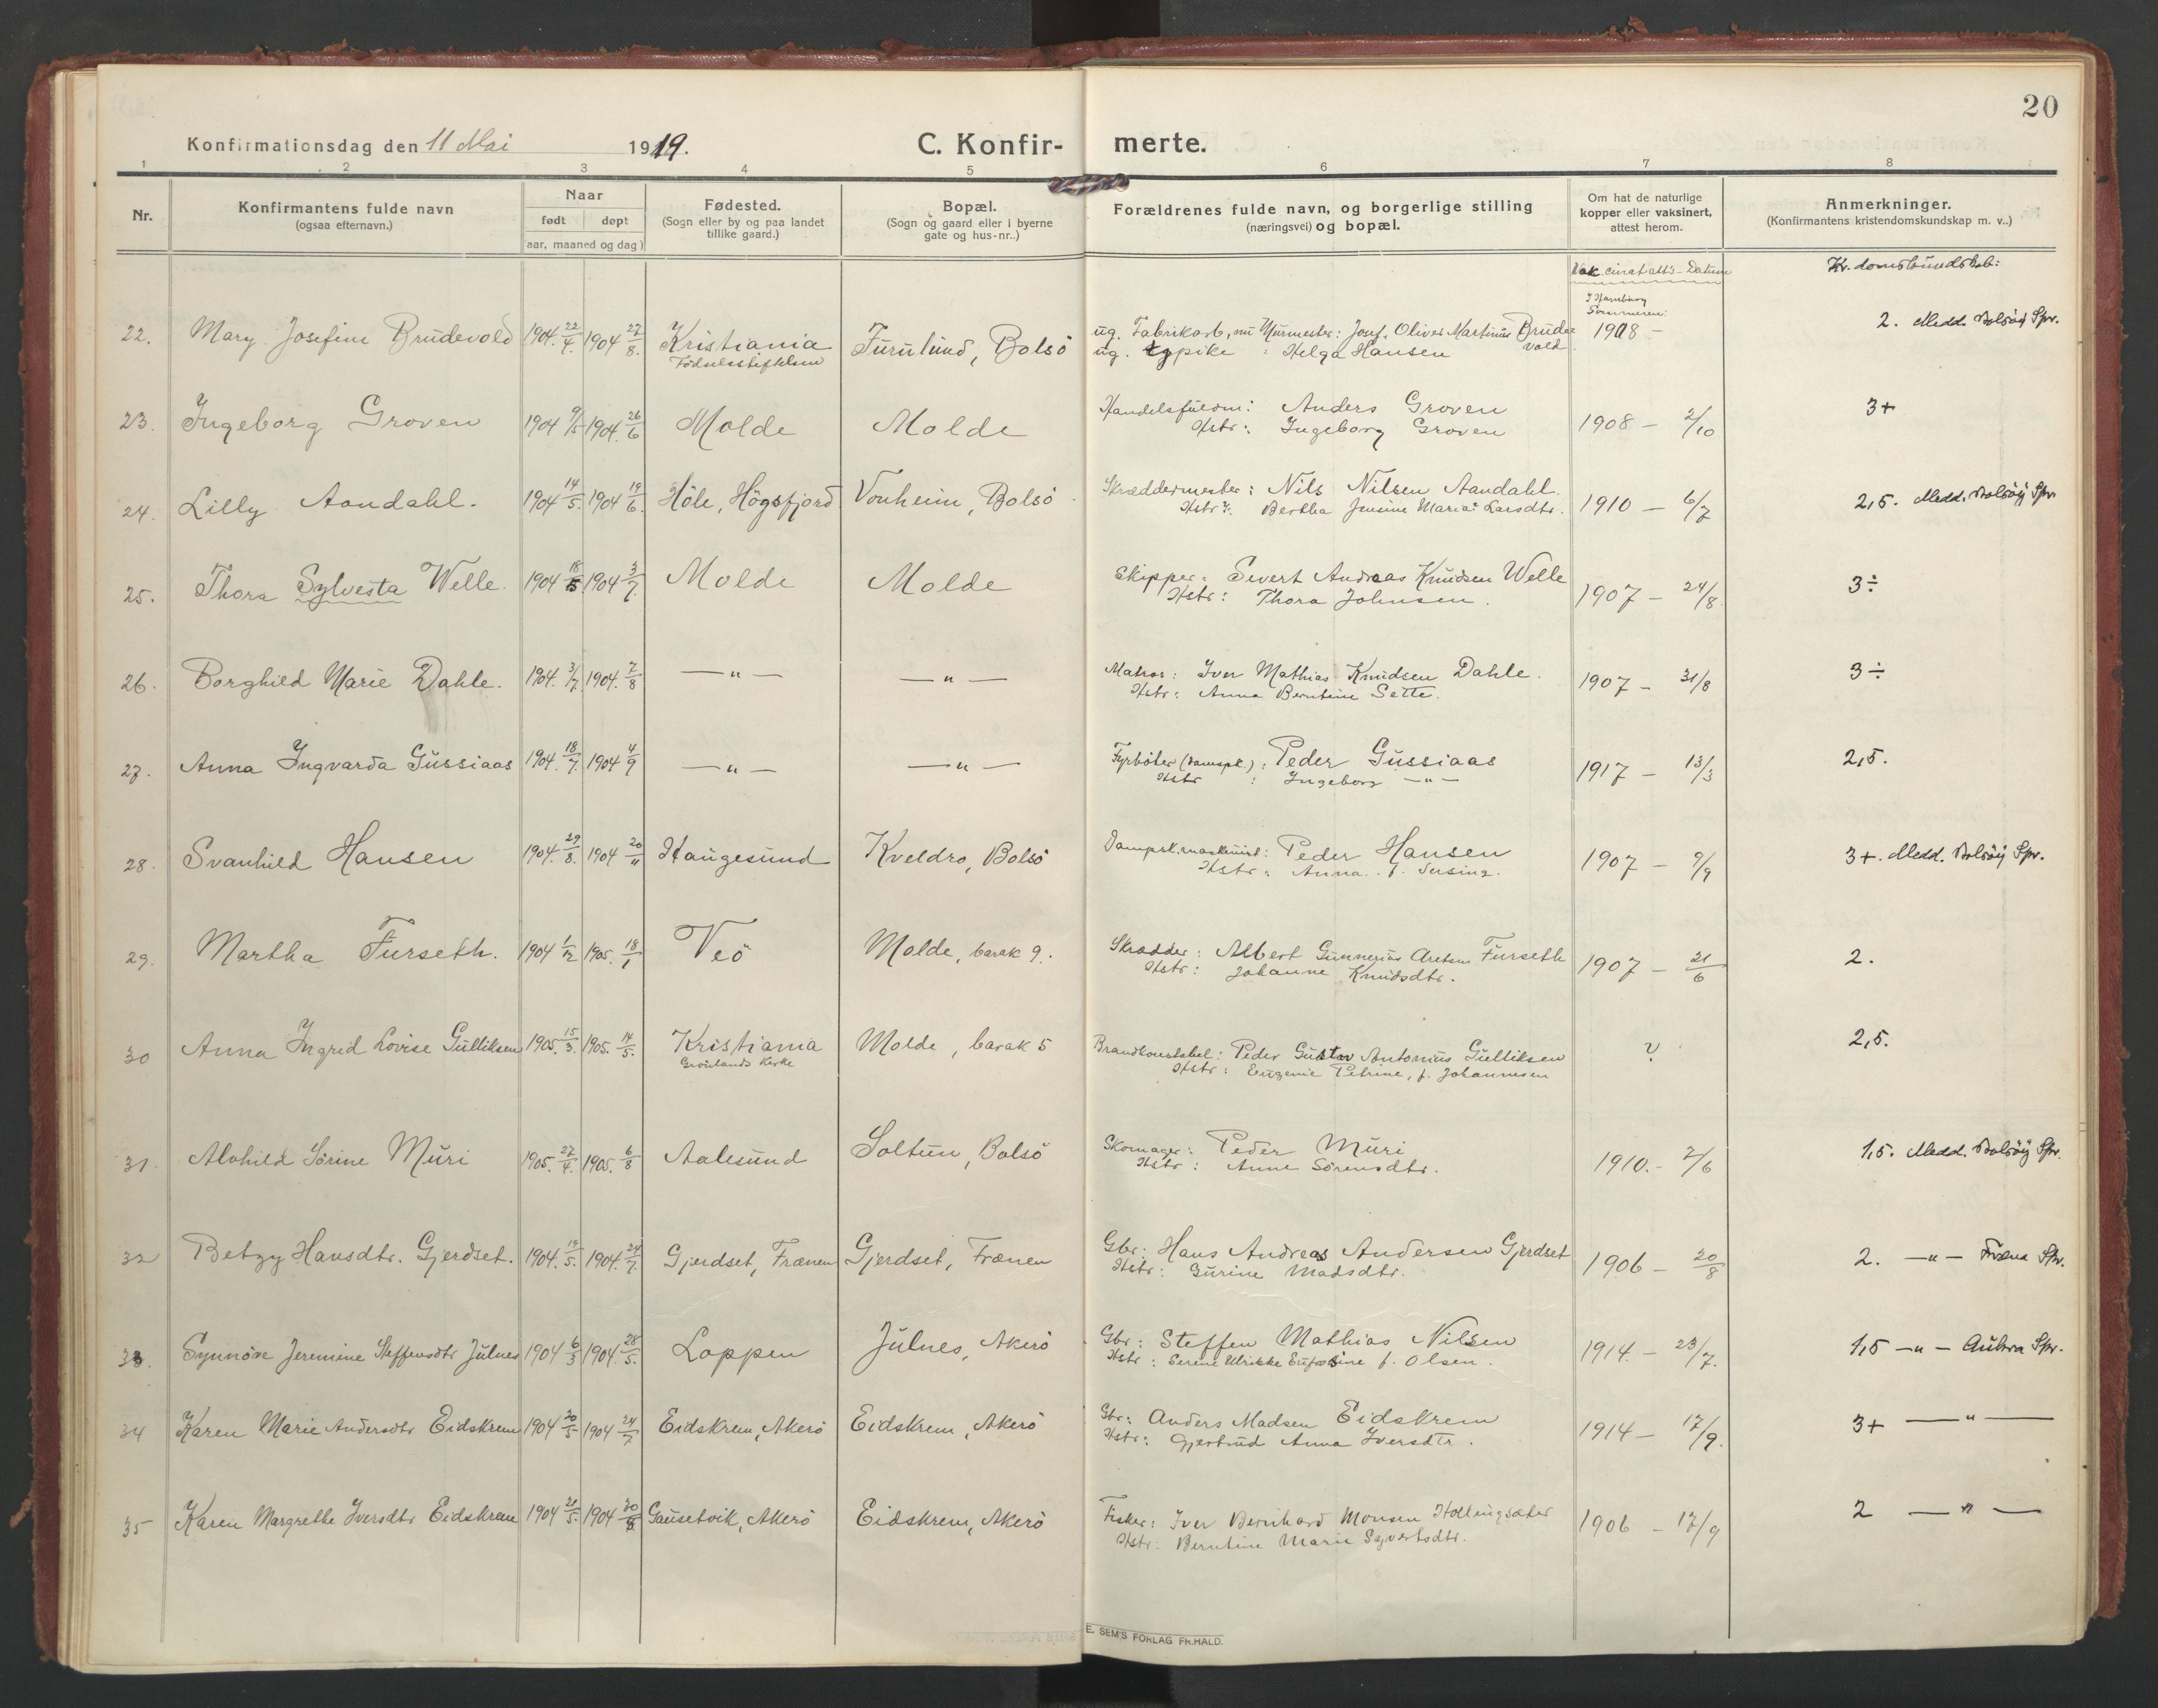 20
Konfirmationsdag den 11 Mai 1919. C. Konfir- merte.
1 2 3 4 5 6 7 8
Nr.
Konfirmantens fulde navn
(ogsaa efternavn.)
Naar
født døpt
aar, maaned og dag)
Fødested.
(Sogn eller by og paa landet
tillike gaard.)
Bopæl.
(Sogn og gaard eller i byerne
gate og hus-nr..)
Forældrenes fulde navn, og borgerlige stilling
(næringsvei) og bopæl.
Om hat de naturlige
kopper eller vaksinert,
attest herom.
Anmerkninger.
(Konfirmantens kristendomskundskap m. v..)
Datum
Kr.domskundskab:
22. Mary Josefine Brudevold 1904. 22/4. 1904 27/8. Kristiania Furulund, Bolsö
Födselsstiftelsen
ug. Fabrikarb., nu Murmester: Josef Oliver Martinus Brude-
vold
ug. pike : Helga Hansen
I Hamburg
Sommeren
1908 -
2. Medd. Bolsöy Spr.
23. Ingeborg Groven 1904 9/5 1904. 26/6 Molde Molde
Handelsfuldm: Anders Groven
Hstr: Ingeborg Groven
1908 - 2/10
3+
24. Lilly Aandahl. 1904 14/5. 1904 19/6. Höle, Högsfjord Vonheim, Bolsö
Skræddermester: Nils Nilsen Aandahl.
Hstr: Bertha Jensine Maria Larsdtr.
1910 - 6/7
2,5. Medd. Bolsöy Spr.
25. Thora Sylvesta Welle. 1904 18/5 1904 3/7. Molde Molde
Skipper: Sivert Andreas Knudsen Welle
Hstr: Thora Johnsen.
1907 - 24/8.
3÷
26. Borghild Marie Dahle. 1904. 3/7 1904. 7/8 — " — — " —
Matros: Iver Mathias Knudsen Dahle.
Hstr: Anna Berntine Sette.
1907 - 31/8
3÷
27. Anna Ingvarda Gussiaas 1904. 18/7. 1904 4/9 — " — — " —
Fyrböter (dampsk.): Peder Gussiaas
Hstr : Ingeborg — " —
1917 - 13/3
2,5.
28. Svanhild Hansen 1904. 29/8. 1904 20/11 Haugesund Kveldro, Bolsö
Dampsk.maskinist: Peder Hansen
Hstr: Anna. f.
1907 - 9/9
3+. Medd. Bolsöy Spr.
29. Martha Furseth. 1904 1/12 1905. 18/1 Veö Molde, barak 9.
Skrædder: Albert Gunnerius Furseth
Hstr: Johanne Knudsdtr.
1907 - 21/6
2.
30 Anna Ingrid Lovise Gulliksen 1905. 15/3. 1905. 14/5. Kristiania Molde, barak 5
Grönlands Kirke
Brandkonstabel: Peder Gustav Antonius Gulliksen
Hstr: Eugenie Petrine, f. Johannesen
?
2,5.
31. Alvhild Sörine Muri 1905. 27/4. 1905. 6/8 Aalesund Soltun, Bolsö
Skomager: Peder Muri
Hstr: Anne Sörensdtr.
1910. - 2/6
1,5. Medd. Bolsöy Spr.
32 Betzy Hansdtr. Gjerdset. 1904. 19/5. 1904. 24/7. Gjerdset, Frænen Gjerdset, Frænen
Gbr: Hans Andreas Andersen Gjerdset
Hstr: Gurine Madsdtr.
1906 - 20/8
2. — " — Fræna Spr.
33. Synnöve Jeremine Steffensdtr Julnes 1904 6/3 1904. 28/5. Loppen Julnes, Akerö
Gbr: Steffen Mathias Nilsen
Hstr: Serine Ulrikke f. Olsen.
1914. - 23/7.
1,5 — " — Aukra Spr.
34 Karen Marie Andersdtr Eidskrem 1904 20/5 1904 24/7 Eidskrem, Akerö Eidskrem, Akerö
Gbr: Anders Madsen Eidskrem
Hstr: Gjertrud Anna Iversdtr.
1914 - 17/9.
3+ — " —
35 Karen Margrethe Iversdtr Eidskrem 1904 21/5. 1904 Gausetvik, Akerö Eidskrem, Akerö
Fisker: Iver Bernhard Monsen Hollingsæter
Hstr: Berntine Marie Syvertsdtr.
1906 - 17/9
2 — " —
E. SEM'S FORLAG FR.HALD.